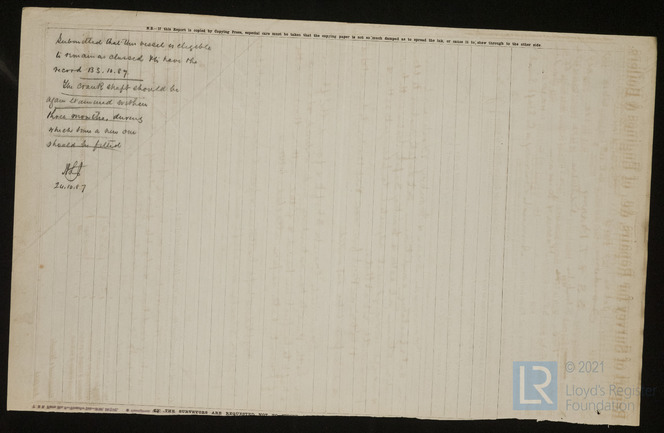 N.B.—If this Report is copied by Copying Press, especial care must be taken that the copying paper is not so much damped as to spread the ink, or cause it to show through to the other side.
Submitted that this vessel is eligible
to remain as classed & to have the
record BS.10.87
The crank shaft should be
again examined within
three months, during
which time a new one
should be fitted
24.10.87
THE SURVEYORS ARE REQUESTED NOT
LR
© 2021
Lloyd's Register
Foundation